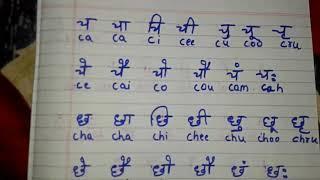 च चा चि ची चु चू चृ
ca ca ci cee cu coo cru
चे चै चो चौ चं चः
ce cai co cou cam cah
छ छा छि छी छु छू छृ
cha cha chi chee chu choo chru
छे छै छो छौ छं छः